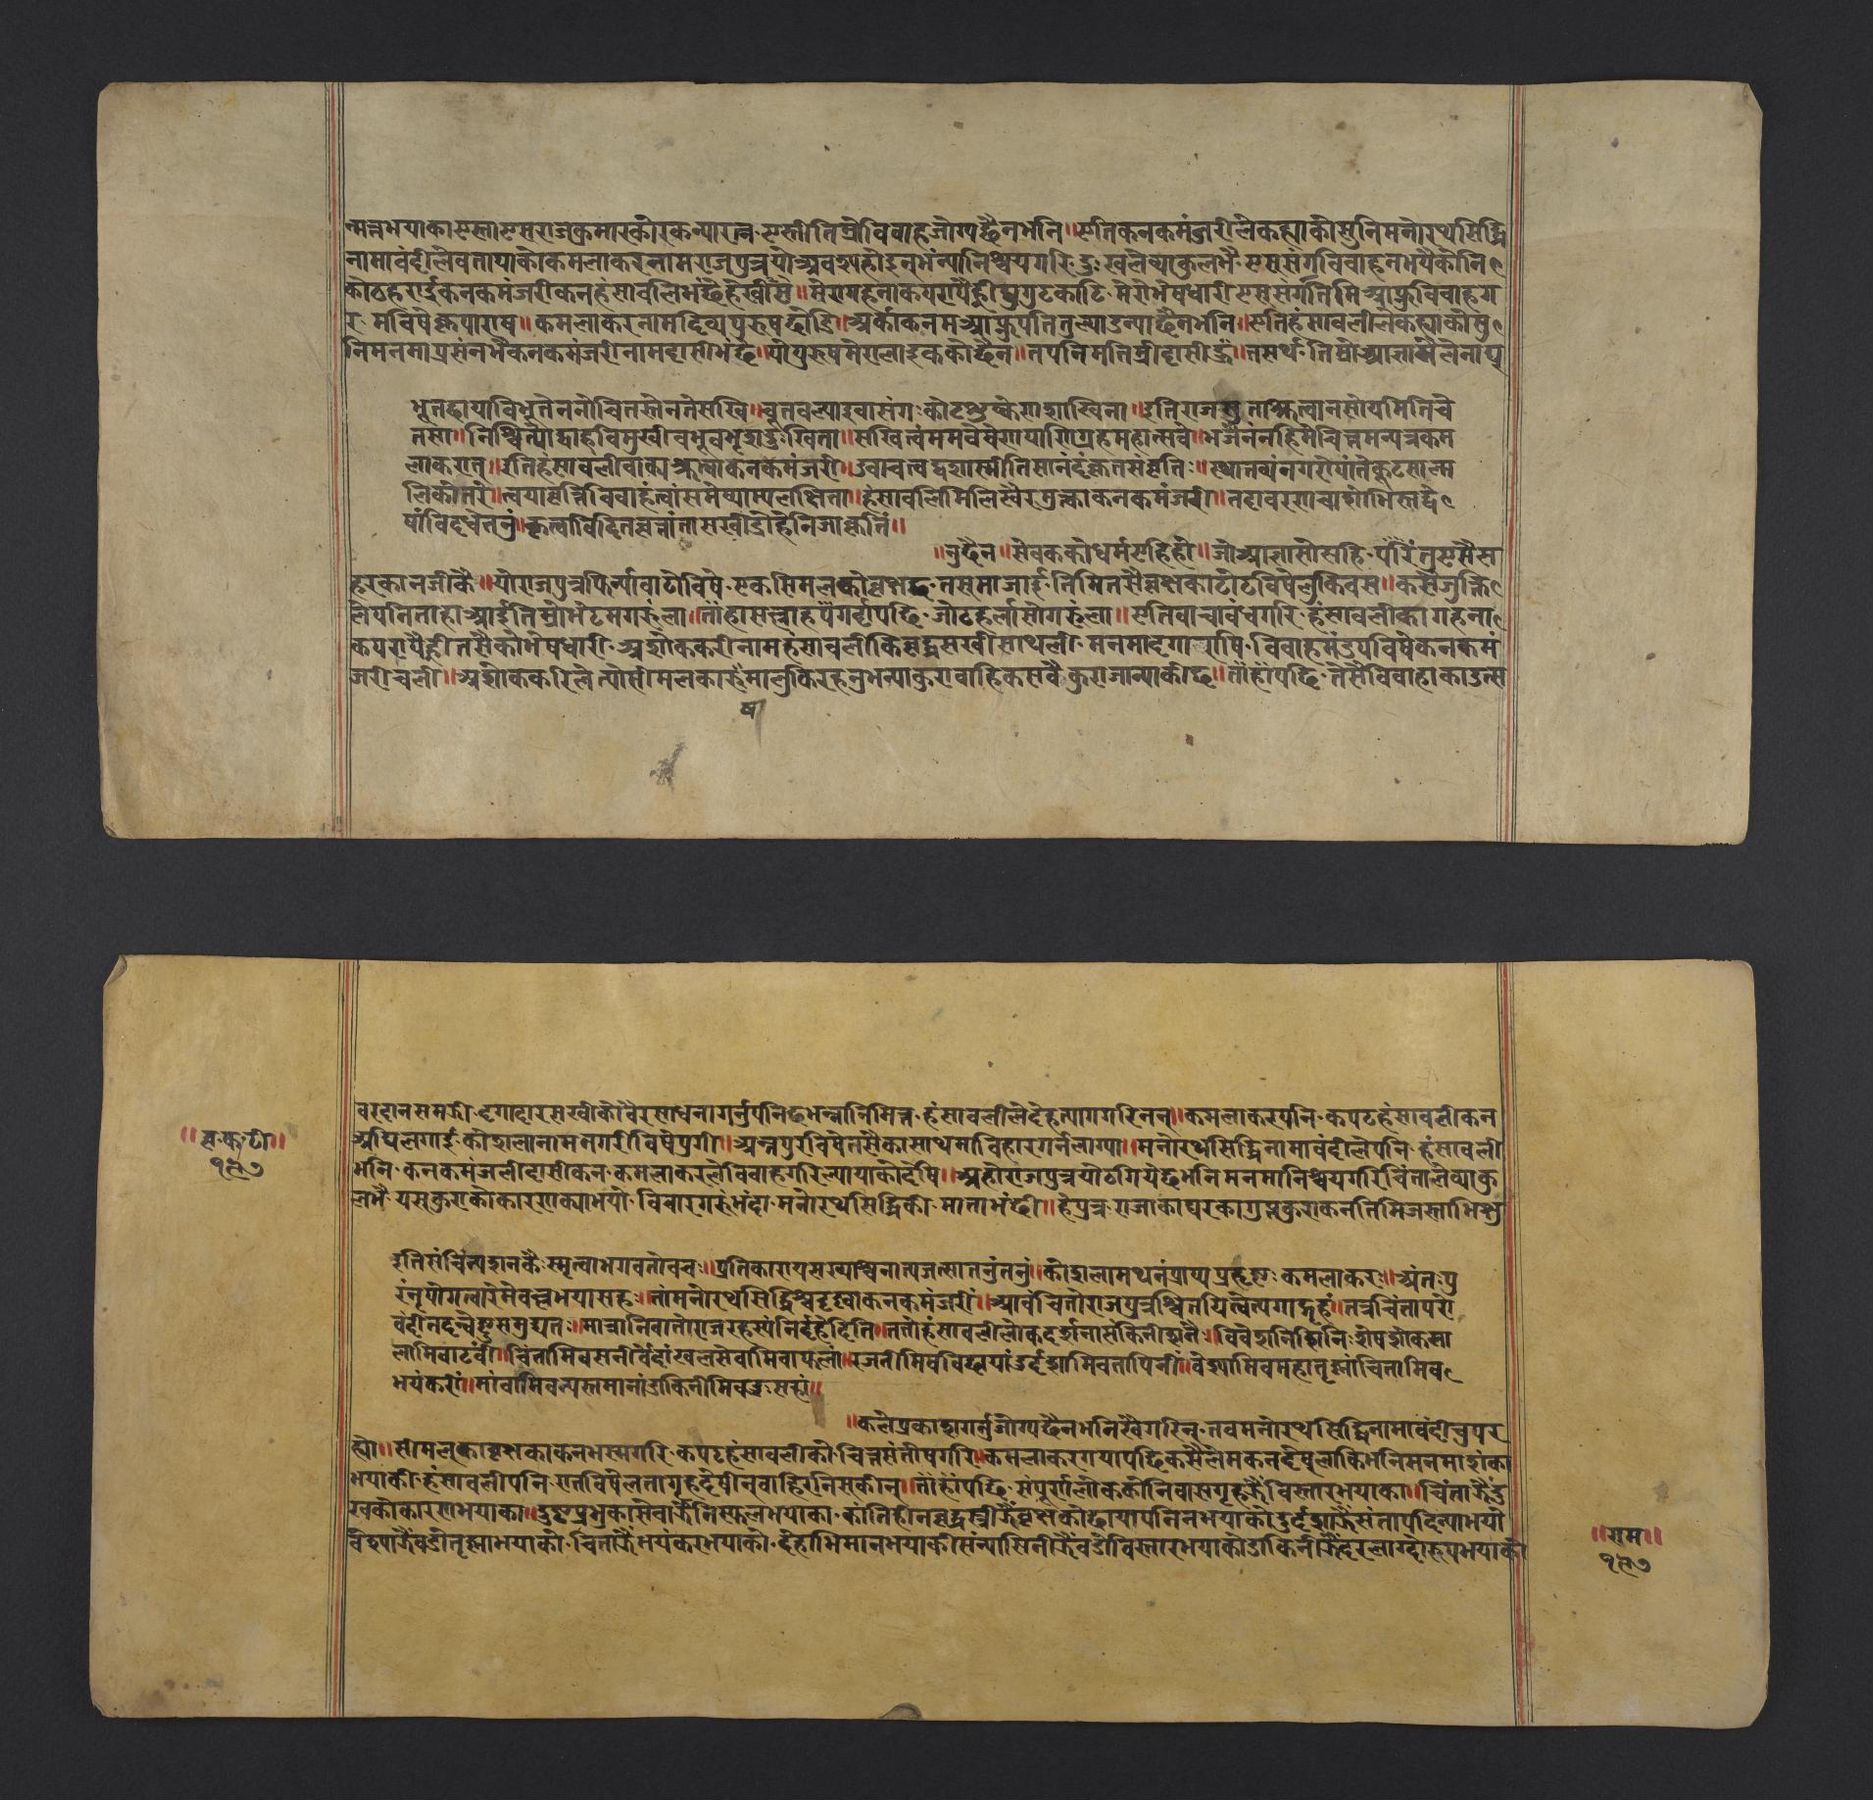 न्मत्तभयाका एस्ता एस राजकुमारकोर कन्यारत्न एस्तीतिम्रो विवाहजोग्य छैनभनि॥ एति कनकमंजरीले कह्याको सुनि मनोरथसिद्धि
नामा वंदीले वतायाको कमलाकरनाम राजपुत्रयो अवश्य होइनभंन्या निश्चयगरि दुःखले व्याकुलभै एससंग विवाहनभयैकोनि
को ठहराई कनकमंजरीकन हंसावलिभंछ हेसखीसु॥ मेरा गहनाकपरापैह्री घुगुटकाटि मेरो भेषधारी एससंग तिमि आफु विवाहग
र मविषे कृपाराष॥ कमलाकरनाम दिव्यपुरुषछोडि॥ अर्काकन म आफ्नुपतितुल्याउन्या छैनभनि॥ एति हंसावलीले कह्याको सु
नि मनमा प्रसंनभै कनकमंजरीनाम दासीभंछे॥ यो पुरुष मेरालाइकको छैन॥ तपनि मतिम्री दासी हुं॥ तसर्थ तिम्रो आज्ञामैलेनाघ्
भूतछायाविधूतेननोचितस्तेनतेसखि॥ चूतवल्याइवासंगः कोटशुष्केणशाखिना॥ इतिराजसुताश्रुत्वानसोयमितिचे
तसा॥ निश्चित्योद्वाहविमुखीवभूवभृशदुःखिता॥ सखित्वंममवेषेणयापाणिग्रहमहोत्सवे॥ भजैनंनहिमेचित्तमन्यत्रकम
लाकरात्॥ इतिहंसावलीवाक्यंश्रुत्वाकनकमंजरी॥ उवाचत्वद्वशास्मीतिसानंदंकृतसंवृतिः॥ स्थातव्यंनगरोपांतेकूटशाल्म
लिकोतरे॥ त्वयावृत्तेविवाहेत्वांसमेष्याम्यलक्षिता॥ हंसावलिमिलिस्वैरमुक्त्वाकनकमंजरी॥ तदावरणचाशोभिस्ताद्वे
षांविदधेतनुं॥ कृत्वाविदितवृत्तांतासखीद्रोहेनिजाकृतिं॥
॥नुछैन॥ सेवकको धर्म एहि हो॥ जो आज्ञा सो सहि परंतु एसैस
हरकानजीकै॥ यो राजपुत्र फिर्न्या वाटोविषे एक सिमलको वृक्ष छ तसमाजाई तिमि तसै वृक्षका टोटविषे लुकिवस॥ कसै जुक्ति
लेपनि ताहा आई तिम्रो भेट म गरुंला॥ ताहा सल्लाहपै गर्नूपछि जो ठहर्ला सो गरुंला॥ एति वाचावंधगरि हंसावलीका गहना
कपरापैह्री तसैको भेषधारी अशोककरीनाम हंसावलीकि वृद्धसखीसाथली मनमा दगाराषि विवाहमंडपविषे कनकमं
जरी चली॥ अशोककरिले त्यो सीमलका रुखमा लुकिरहनुभन्याकुरा वाहिक सवै कुरा जान्याकी छ॥ ताहांपछि तेसै विवाहाका उत्स
षा
॥वृ.क.टी॥
१५७
वरदान समझी दगादार सखीको वैरसाधना गर्नुपनि छ भन्नानिमित्त हंसावलीले देहत्यागगरिनन्॥ कमलाकरपनि कपटहंसावलीकन
अघिलगाई कोशलानाम नगरीविषे पुगी॥ अन्तपुरविषे तसैकासाथमा विहारगर्नलाग्या॥ मनोरथसिद्धिनामा वंदीलेपनि हंसावली
भनि कनकमंजलीदासीकन कमलाकरले विवाहगरिल्यायाको देषि॥ अहो राजपुत्र यो ठगियेछभनि मनमा निश्चयगरि चिंताले व्याकु
लभै यस कुराको कारण क्याभयो विचारगरुंभंदा मनोरथसिद्धिकी माता भंछी॥ हे पुत्र राजाकाघरका गुप्तकुराकन तिमिजस्ताभिक्षु
इतिसंचिंत्यशनकैः स्मृत्वाभगवतोवचः॥ प्रतिकारायसख्याश्चनात्यजत्सातनुंतनुं॥ कोशलामथनंप्राप्यप्रहृष्टः कमलाकरः॥ अंतःपु
रंनृपोगत्वारेमेवल्लभयासह॥ तांमनोरथसिद्धिश्चदृष्ट्वाकनकमंजरीं॥ आवंचितोराजपुत्रश्चिंतयित्वेत्यगाद्गृहं॥ तत्रचिंतापरो
वंदीनदन्वेष्टुसमुद्यतः॥ मात्रानिवारितोराजरहस्यंनिर्दहेदिति॥ ततोहंसावलीलोकदर्शनाशंकिनीशनैः॥ विवेशनिशिनिःशेषशोकशा
लामिवाटवीं॥ चिंतामिवसनीर्वेदांखलसेवामिवाफलां॥ रजनीमिवविछायांदुर्दशामिवतापिनीं॥ वेश्यामिवमहातृष्णांचितामिव
भयंकरीं॥ मांवामिवन्यस्तमानांडाकिनीमिवदुःसहां॥
॥कले प्रकाशगर्नुजोग्य छैनभनि स्वैगरिन् तव मनोरथसिद्धिनामा वंदी चुपर
ह्यो॥ सीमलका वृक्षकाकन भस्मगरि कपटहंसावलीको चित्तसंतोषगरि कमलाकर गयापछि कसैले मकन देषुलाकिभनि मनमा शंका
भयाकी हंसावलीपनि रातविषे लतागृहदेषीन् वाहिरनिस्कीन्॥ ताहांपछि संपूर्णलोकको निवासगृहझैं विस्तारभयाका॥ चिंताझैं दु
खको कारण भयाका॥ दुष्टप्रभुका सेवाझैं निस्फलभयाका कांतिहीन वृद्धस्त्रीझैं वृक्षको छायापनि नभयाको दुर्दशाझैं संतापदिन्याभयो
वेश्याझैं वडो तृष्णाभयाको चिताझैं भयंकरभयाको देहाभिमानभयाकी संन्यासिनीझैं वडो विस्तारभयाको डाकिनीझैं डरलाग्दोरूपभयाको
॥राम॥
१५७